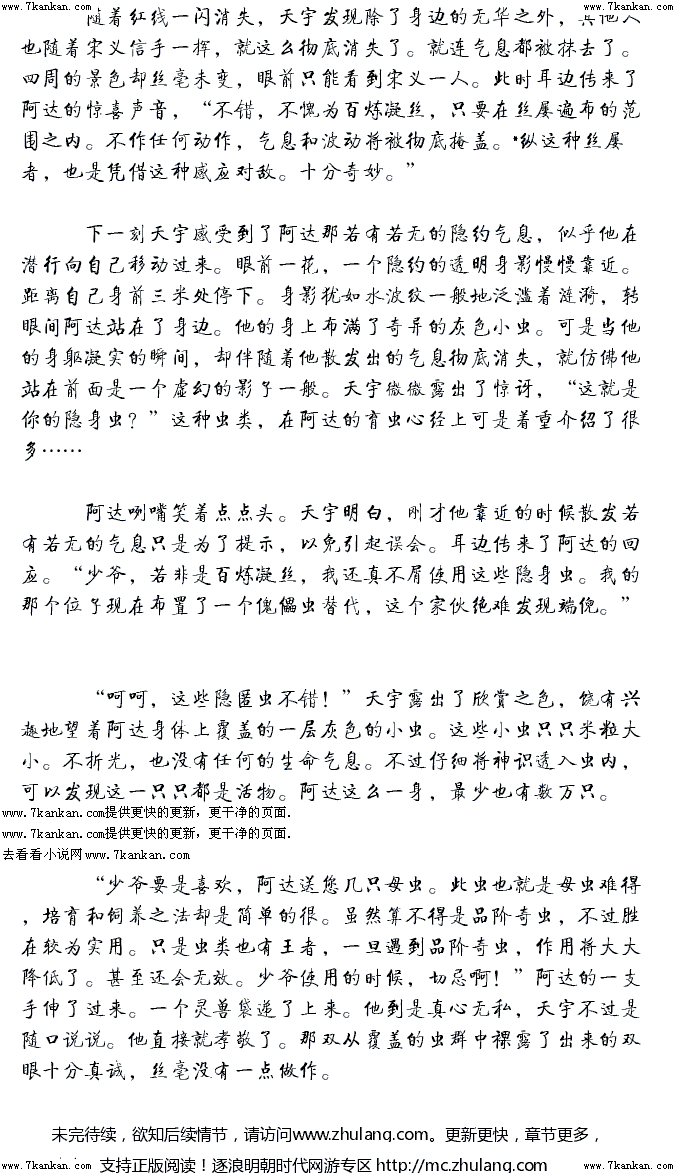 www.7kankan.com www.7kankan.com
随着红线一闪消失，天宇发现除了身边的无华之外，其他人
也随着宋义信手一挥，就这么彻底消失了。就连气息都被抹去了。
四周的景色却丝毫未变，眼前只能看到宋义一人。此时耳边传来了
阿达的惊喜声音，“不错，不愧为百炼凝丝，只要在丝屡遍布的范
围之内。不作任何动作，气息和波动将被彻底掩盖。纵这种丝屡
者，也是凭借这种感应对敌。十分奇妙。”
下一刻天宇感受到了阿达那若有若无的隐约气息，似乎他在
潜行向自己移动过来。眼前一花，一个隐约的透明身影慢慢靠近。
距离自己身前三米处停下。身影犹如水波纹一般地泛滥着涟漪，转
眼间阿达站在了身边。他的身上布满了奇异的灰色小虫。可是当他
的身躯凝实的瞬间，却伴随着他散发出的气息彻底消失，就仿佛他
站在前面是一个虚幻的影子一般。天宇微微露出了惊讶，“这就是
你的隐身虫？”这种虫类，在阿达的育虫心经上可是着重介绍了很
多……
阿达咧嘴笑着点点头。天宇明白，刚才他靠近的时候散发若
有若无的气息只是为了提示，以免引起误会。耳边传来了阿达的回
应。“少爷，若非是百炼凝丝，我还真不屑使用这些隐身虫。我的
那个位子现在布置了一个傀儡虫替代，这个家伙绝难发现端倪。”
“呵呵，这些隐匿虫不错！”天宇露出了欣赏之色，饶有兴
趣地望着阿达身体上覆盖的一层灰色的小虫。这些小虫只只米粒大
小。不折光，也没有任何的生命气息。不过仔细将神识透入虫内，
可以发现这一只只都是活物。阿达这么一身，最少也有数万只。
www.7kankan.com提供更快的更新，更干净的页面.
www.7kankan.com提供更快的更新，更干净的页面.
去看看小说网www.7kankan.com
“少爷要是喜欢，阿达送您几只母虫。此虫也就是母虫难得
，培育和饲养之法却是简单的很。虽然算不得是品阶奇虫，不过胜
在较为实用。只是虫类也有王者，一旦遇到品阶奇虫，作用将大大
降低了。甚至还会无效。少爷使用的时候，切忌啊！”阿达的一支
手伸了过来。一个灵兽袋递了上来。他到是真心无私，天宇不过是
随口说说。他直接就孝敬了。那双从覆盖的虫群中裸露了出来的双
眼十分真诚，丝毫没有一点做作。
未完待续，欲知后续情节，请访问www.zhulang.com。更新更快，章节更多，
www.7kankan.com 支持正版阅读！逐浪明朝时代网游专区 http://mc.zhulang.com www.7kankan.com